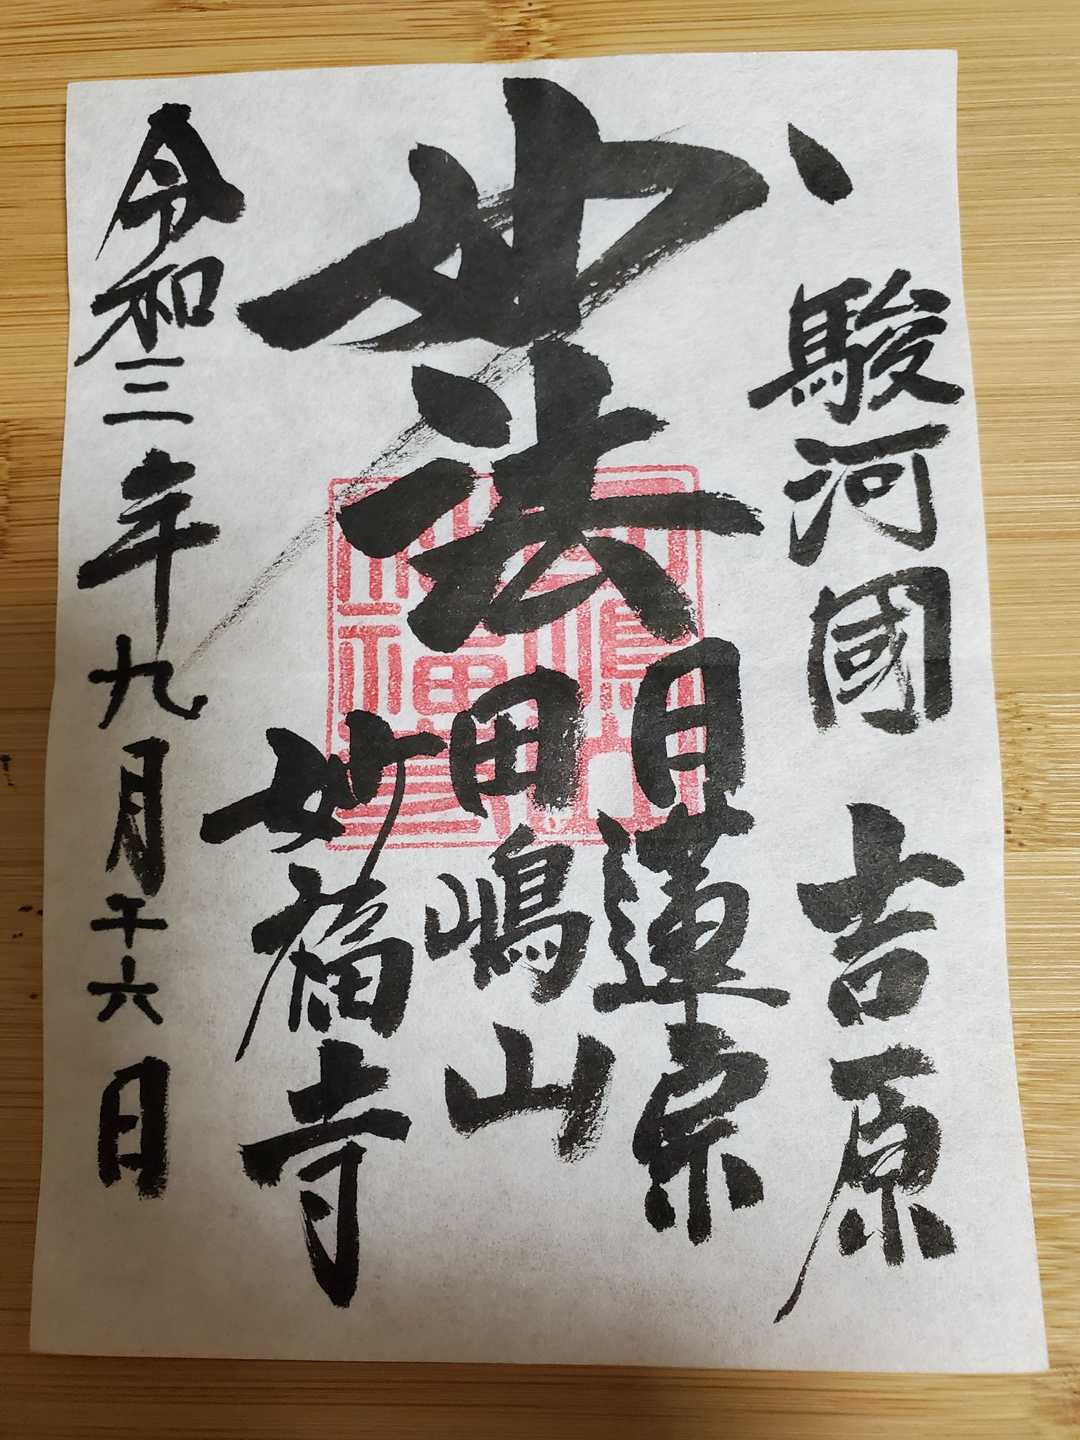 駿河國 吉原
妙法
日蓮宗
田嶋山
妙福寺
令和三年九月二十六日